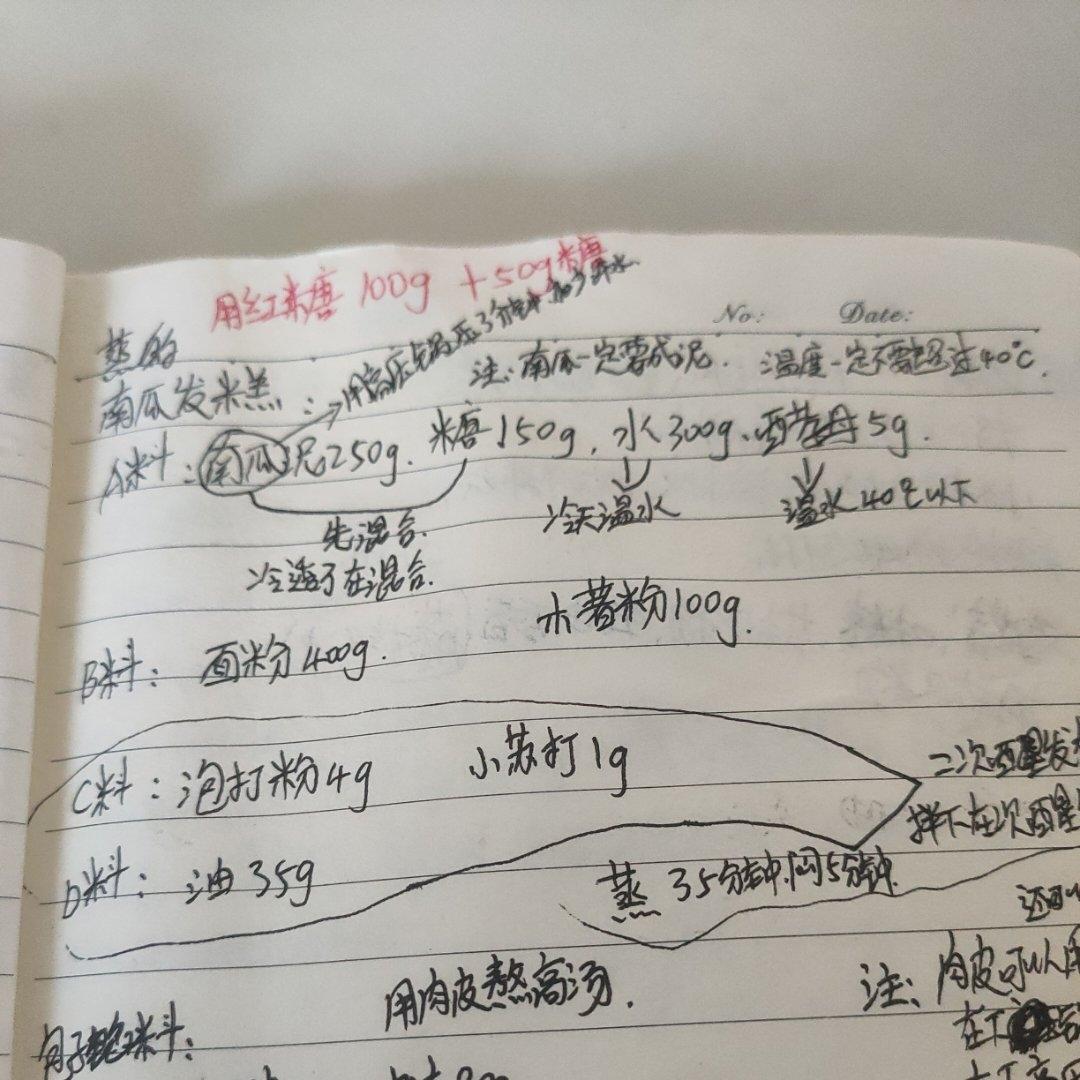 用红糖 100g +50g糖
No: Date:
蒸的
南瓜发米羔:
用高压锅压3分钟 加少许水
注:南瓜一定要成泥. 温度一定不要超过40℃.
A料:南瓜泥250g. 糖150g. 水300g. 酵母5g.
先混合. 冷天温水 温水40℃以下
冷透了在混合.
木薯粉100g.
B料: 面粉400g.
C料:泡打粉4g 小苏打1g
二次醒发
拌下在次醒
D料: 油35g
蒸 35分钟.闷5分钟
还可以
用肉皮熬高汤.
注: 肉皮可以用
包子 料: